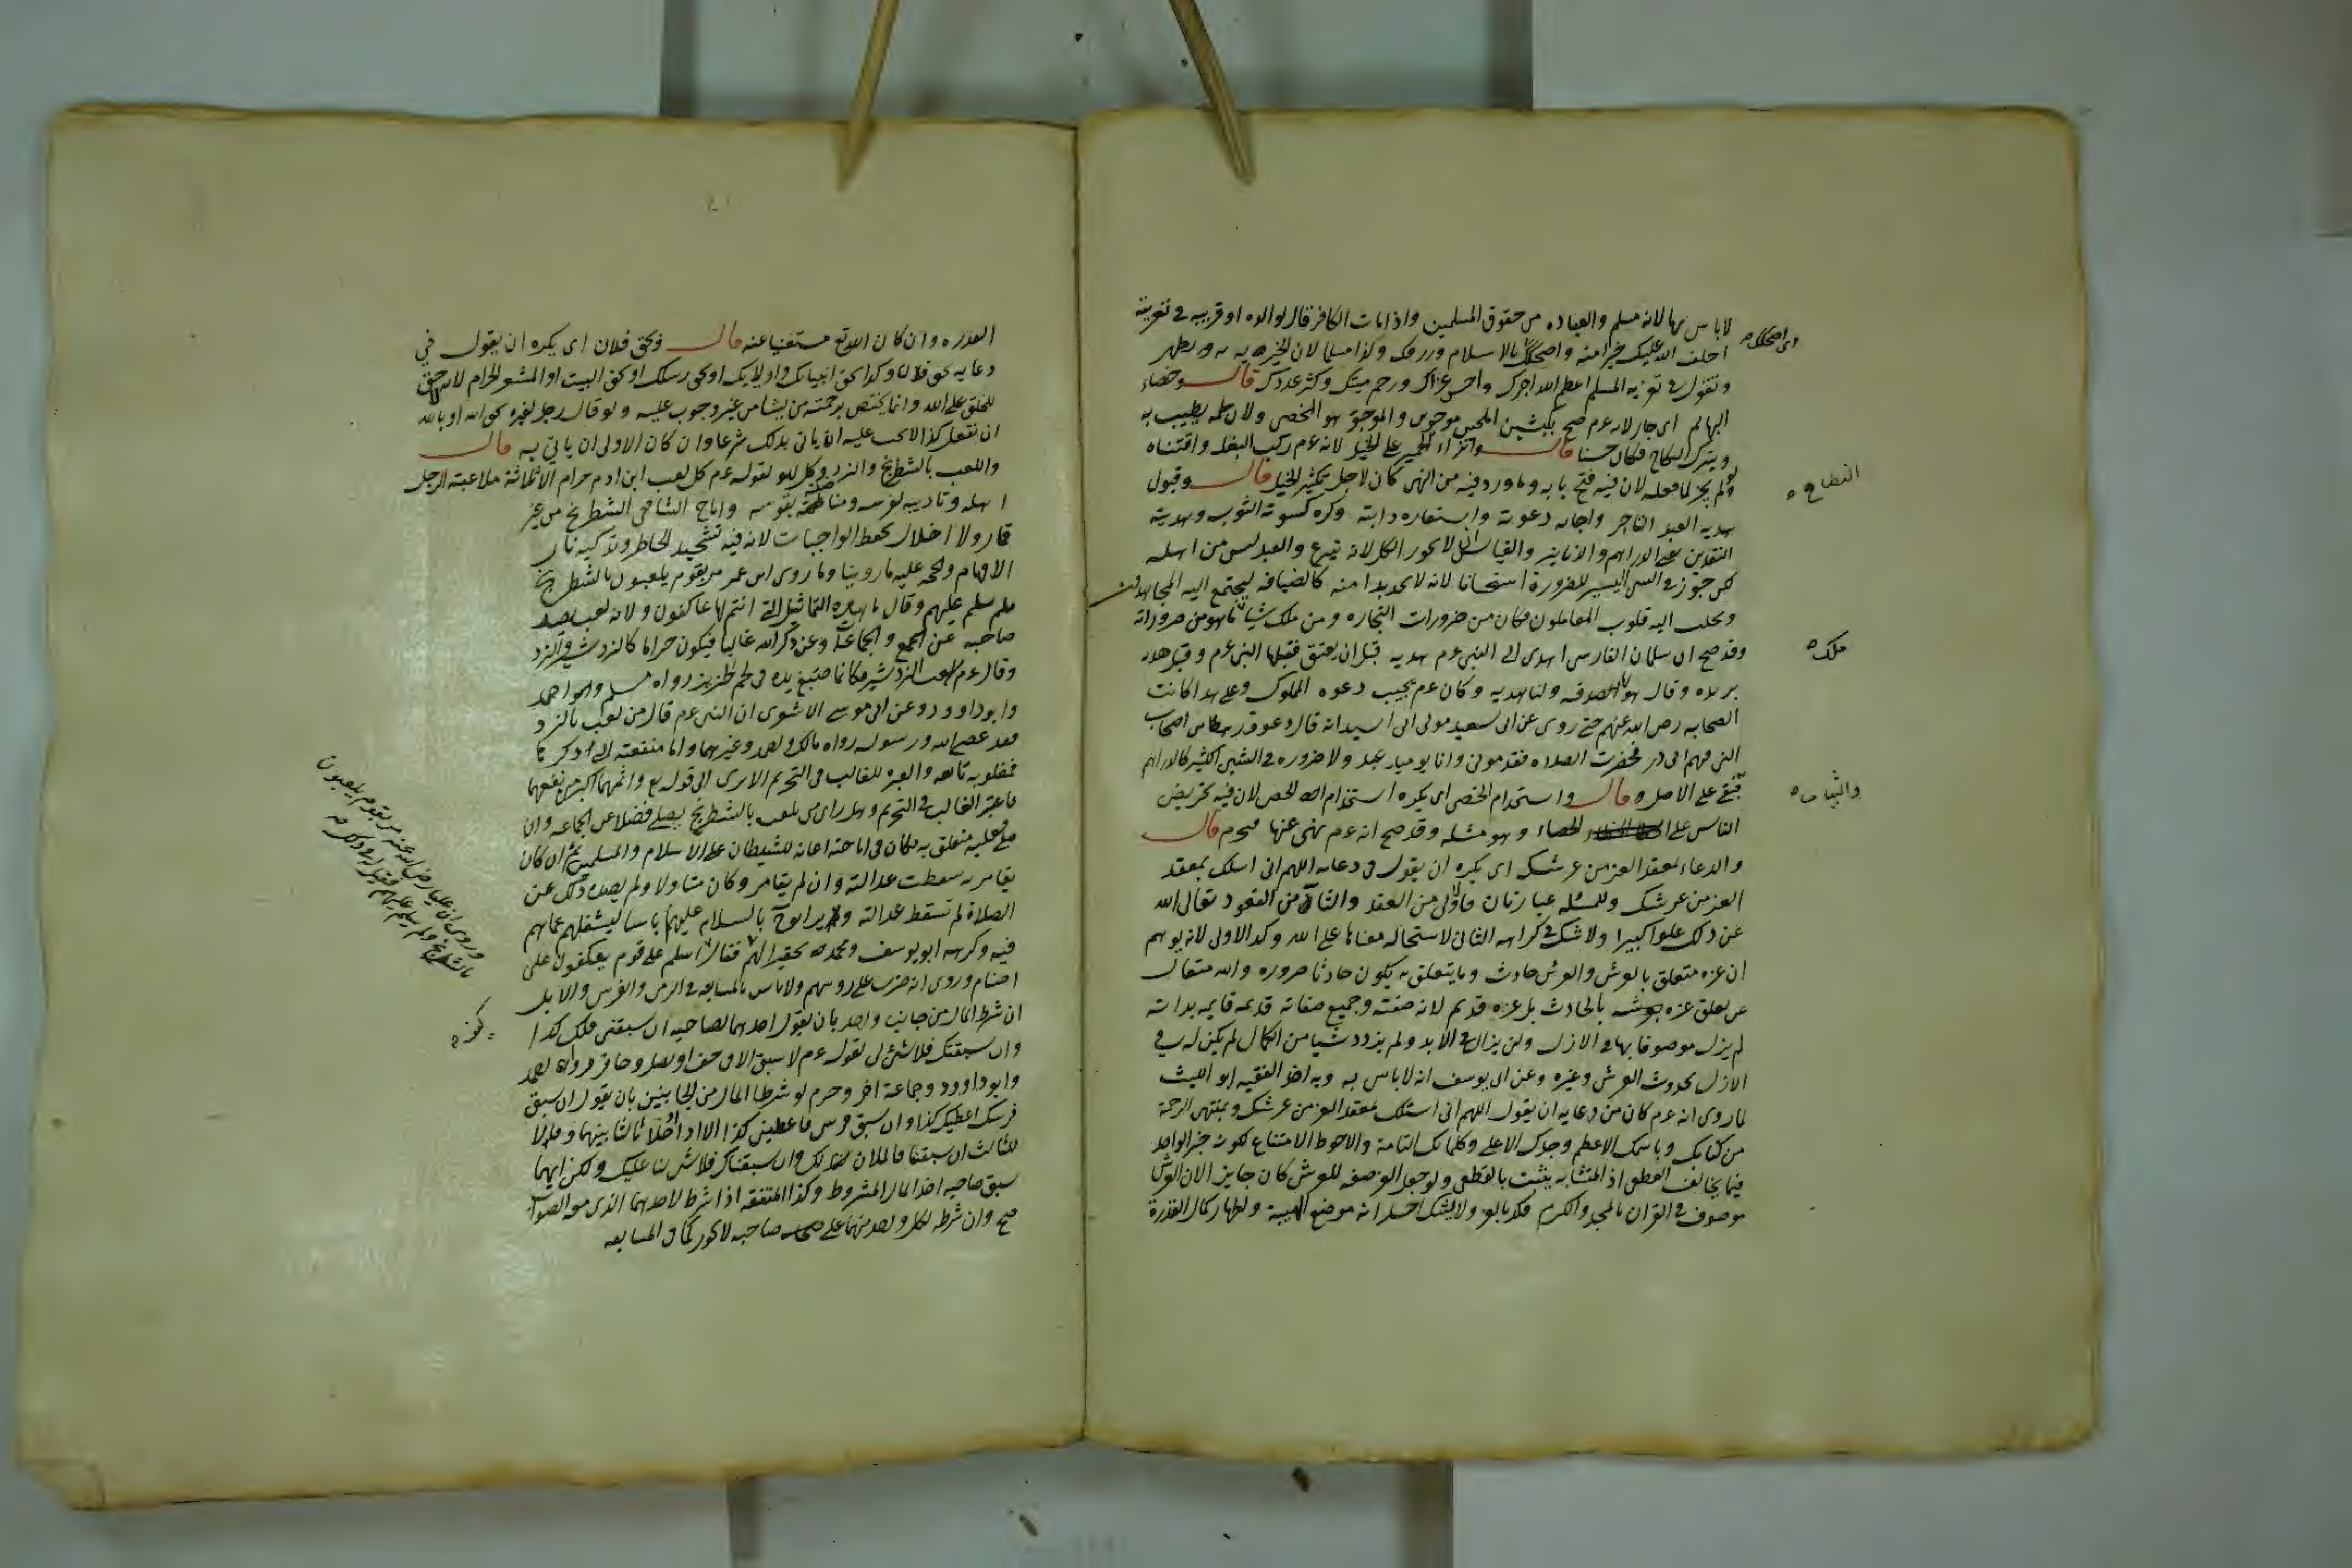 لاباس بها لانه مسلم والعياده من حقوق المسلمين واذا مات الكافر قال لوالده او قريبه في تعزيته
اخلف الله عليك خيرا منه واصلحك بالاسلام ورزقك ولدا مسلما لان الخيريه به تظهر
وتقول في تعزيه المسلم اعظم الله اجرك واحسن عزاك ورحم ميتك وكثر عددك قال وخصاء
البهايم اي جاز لانه عم ضحى بكبشين املحين موجوين والموجو هو المخصي ولان لحمه يطيب به
ويترك النكاح فكان حسنا قال وانزاء الحمير على الخيل لانه عم ركب البغل واقتناه
ولو لم يجز لما فعله لان فيه فتح بابه وما ورد فيه من النهى كان لاجل تكثير الخيل قال وقبول
هديه العبد التاجر واجابه دعوته واستعاره دابته وكره كسوته الثوب وهديته
النقدين يعني الدراهم والدنانير والقياس ان لا يجوز الكل لانه تبرع والعبد ليس من اهله
لكن جوز في الشى اليسير للضرورة استحسانا لانه لا يجد بدا منه كالضيافه ليجتمع اليه المجاهزون
ويجلب اليه قلوب المعاملين فكان من ضرورات التجاره ومن ملك شيا ما هو من ضروراته
وقد صح ان سلمان الفارسى اهدى الى النبى عم هديه قبل ان يعتق فقبلها النبى عم وقبل هديه
بريده وقال هو لها صدقه ولنا هديه وكان عم يجيب دعوه المملوك وعلى هذا كانت
الصحابه رضى الله عنهم حتى روى عن ابى سعيد مولى ابى اسيد انه قال دعوت رهطا من اصحاب
النبى فيهم ابى ذر فحضرت الصلاه فقدمونى وانا يوميذ عبد ولا ضروره في الشىء الكثير كالدراهم
فبقى على الاصل قال واستخدام الخصى اى يكره استخدام الخصى لان فيه تحريض
الناس على الخصاء وهو مثله وقد صح انه عم نهى عنها فيحرم قال
والدعاء بمعقد العز من عرشك اى يكره ان يقول في دعايه اللهم انى اسلك بمعقد
العز من عرشك وللمسله عبارتان فالاولى من العقد والثانيه من القعود تعالى الله
عن ذلك علوا كبيرا ولا شك في كراهه الثانى لاستحاله معناها على الله وكذا الاولى لانه يوهم
ان عزه متعلق بالعرش والعرش حادث وما يتعلق به يكون حادثا ضروره والله متعال
عن تعلق عزه بالحادث بل عزه قديم لانه صفته وجميع صفاته قديمه قايمه بذاته
لم يزل موصوفا بها في الازل ولن يزال في الابد ولم يزدد شيا من الكمال لم يكن له في
الازل بحدوث العرش وغيره وعن ابى يوسف انه لاباس به وبه اخذ الفقيه ابو الليث
لما روى انه عم كان من دعايه ان يقول اللهم انى اسئلك بمعقد العز من عرشك ومنتهى الرحمة
من كتابك وباسمك الاعظم وجدك الاعلى وكلماتك التامة والاحوط الامتناع لكونه خبر الواحد
فيما يخالف القطعى اذ المتشابه يثبت بالقطعى ولو جعل العز صفه للعرش كان جايز الان العرش
موصوف في القران بالمجد والكرم فكذا بالعز ولا يشك احد انه موضع الهيبة واظهار كمال القدرة
واصلحك
النكاح
ملك
والثياب
القدره وان كان الله تع مستغنيا عنه قال وبحق فلان اى يكره ان يقول في
دعايه بحق فلان وكذا بحق انبيائك واوليائك او بحق رسلك او بحق البيت او المشعر الحرام لانه لا حق
للخلق على الله وانما يختص برحمته من يشا من غير وجوب عليه ولو قال رجل لغيره بحق الله او بالله
ان تفعل كذا لا يجب عليه ان ياتى بذلك شرعا وان كان الاولى ان ياتى به قال
واللعب بالشطرنج والنرد وكل لهو لقوله عم كل لعب ابن ادم حرام الا ثلاثة ملاعبته الرجل
اهله وتاديبه لفرسه ومناضلته بقوسه واباح الشافعى الشطرنج من غير
قمار ولا اخلال بحفظ الواجبات لانه فيه تشحيذ الخاطر وتذكيه نار
الافهام والحجه عليه ما روينا وما روى ابن عمر مر بقوم يلعبون بالشطرنج
فلم يسلم عليهم وقال ما هذه التماثيل التى انتم لها عاكفون ولانه لعب يصد
صاحبه عن الجمع والجماعة وعن ذكر الله غالبا فيكون حراما كالنردشير والنرد
وقال عم من لعب النردشير فكانما صبغ يده في لحم خنزير رواه مسلم واحمد
وابو داوود وعن ابى موسى الاشعرى ان النبى عم قال من لعب بالنرد
فقد عصى الله ورسوله رواه مالك واحمد وغيرهما واما منفعته التى ذكرها
فمغلوبه تابعه والعبره للغالب في التحريم الا ترى الى قوله تع واثمهما اكبر من نفعهما
فاعتبر الغالب في التحريم وهل راى من يلعب بالشطرنج يصلى فضلا عن الجماعه وان
صلى فقلبه متعلق به فكان في اباحته اعانه للشيطان على الاسلام والمسلمين ثم ان كان
يقامر به سقطت عدالته وان لم يقامر وكان متاولا ولم يصده ذلك عن
الصلاة لم تسقط عدالته ولم ير ابو ح بالسلام عليهم باسا ليشغلهم عما هم
فيه وكرهه ابو يوسف ومحمد تحقيرا لهم فقالا السلم على قوم يعكفون على
اصنام وروى انه ضرب على روسهم ولاباس بالمسابقه في الرمى والفرس والابل
ان شرط المال من جانب واحد بان يقول احدهما لصاحبه ان سبقتنى فلك كذا
وان سبقتك فلا شئ لى لقوله عم لا سبق الا في خف او نصل او حافر رواه احمد
وابو داوود وجماعة اخر وحرم لو شرطا المال من الجانبين بان يقول ان سبق
فرسك اعطيك كذا وان سبق فرسى فاعطنى كذا الا اذا ادخلا ثالثا بينهما وقالا
للثالث ان سبقتنا فالمالان لك وان سبقناك فلا شئ لنا عليك ولكن ايهما
سبق صاحبه اخذ المال المشروط وكذا المتفقه اذا شرط لاحدهما الذى معه الصواب
صح وان شرطه لكل واحد منهما على صاحبه لا يجوز كما في المسابقه
وروى ان عليا رضى الله عنه مر بقوم يلعبون
بالشطرنج فلم يسلم عليهم فقيل له في ذلك